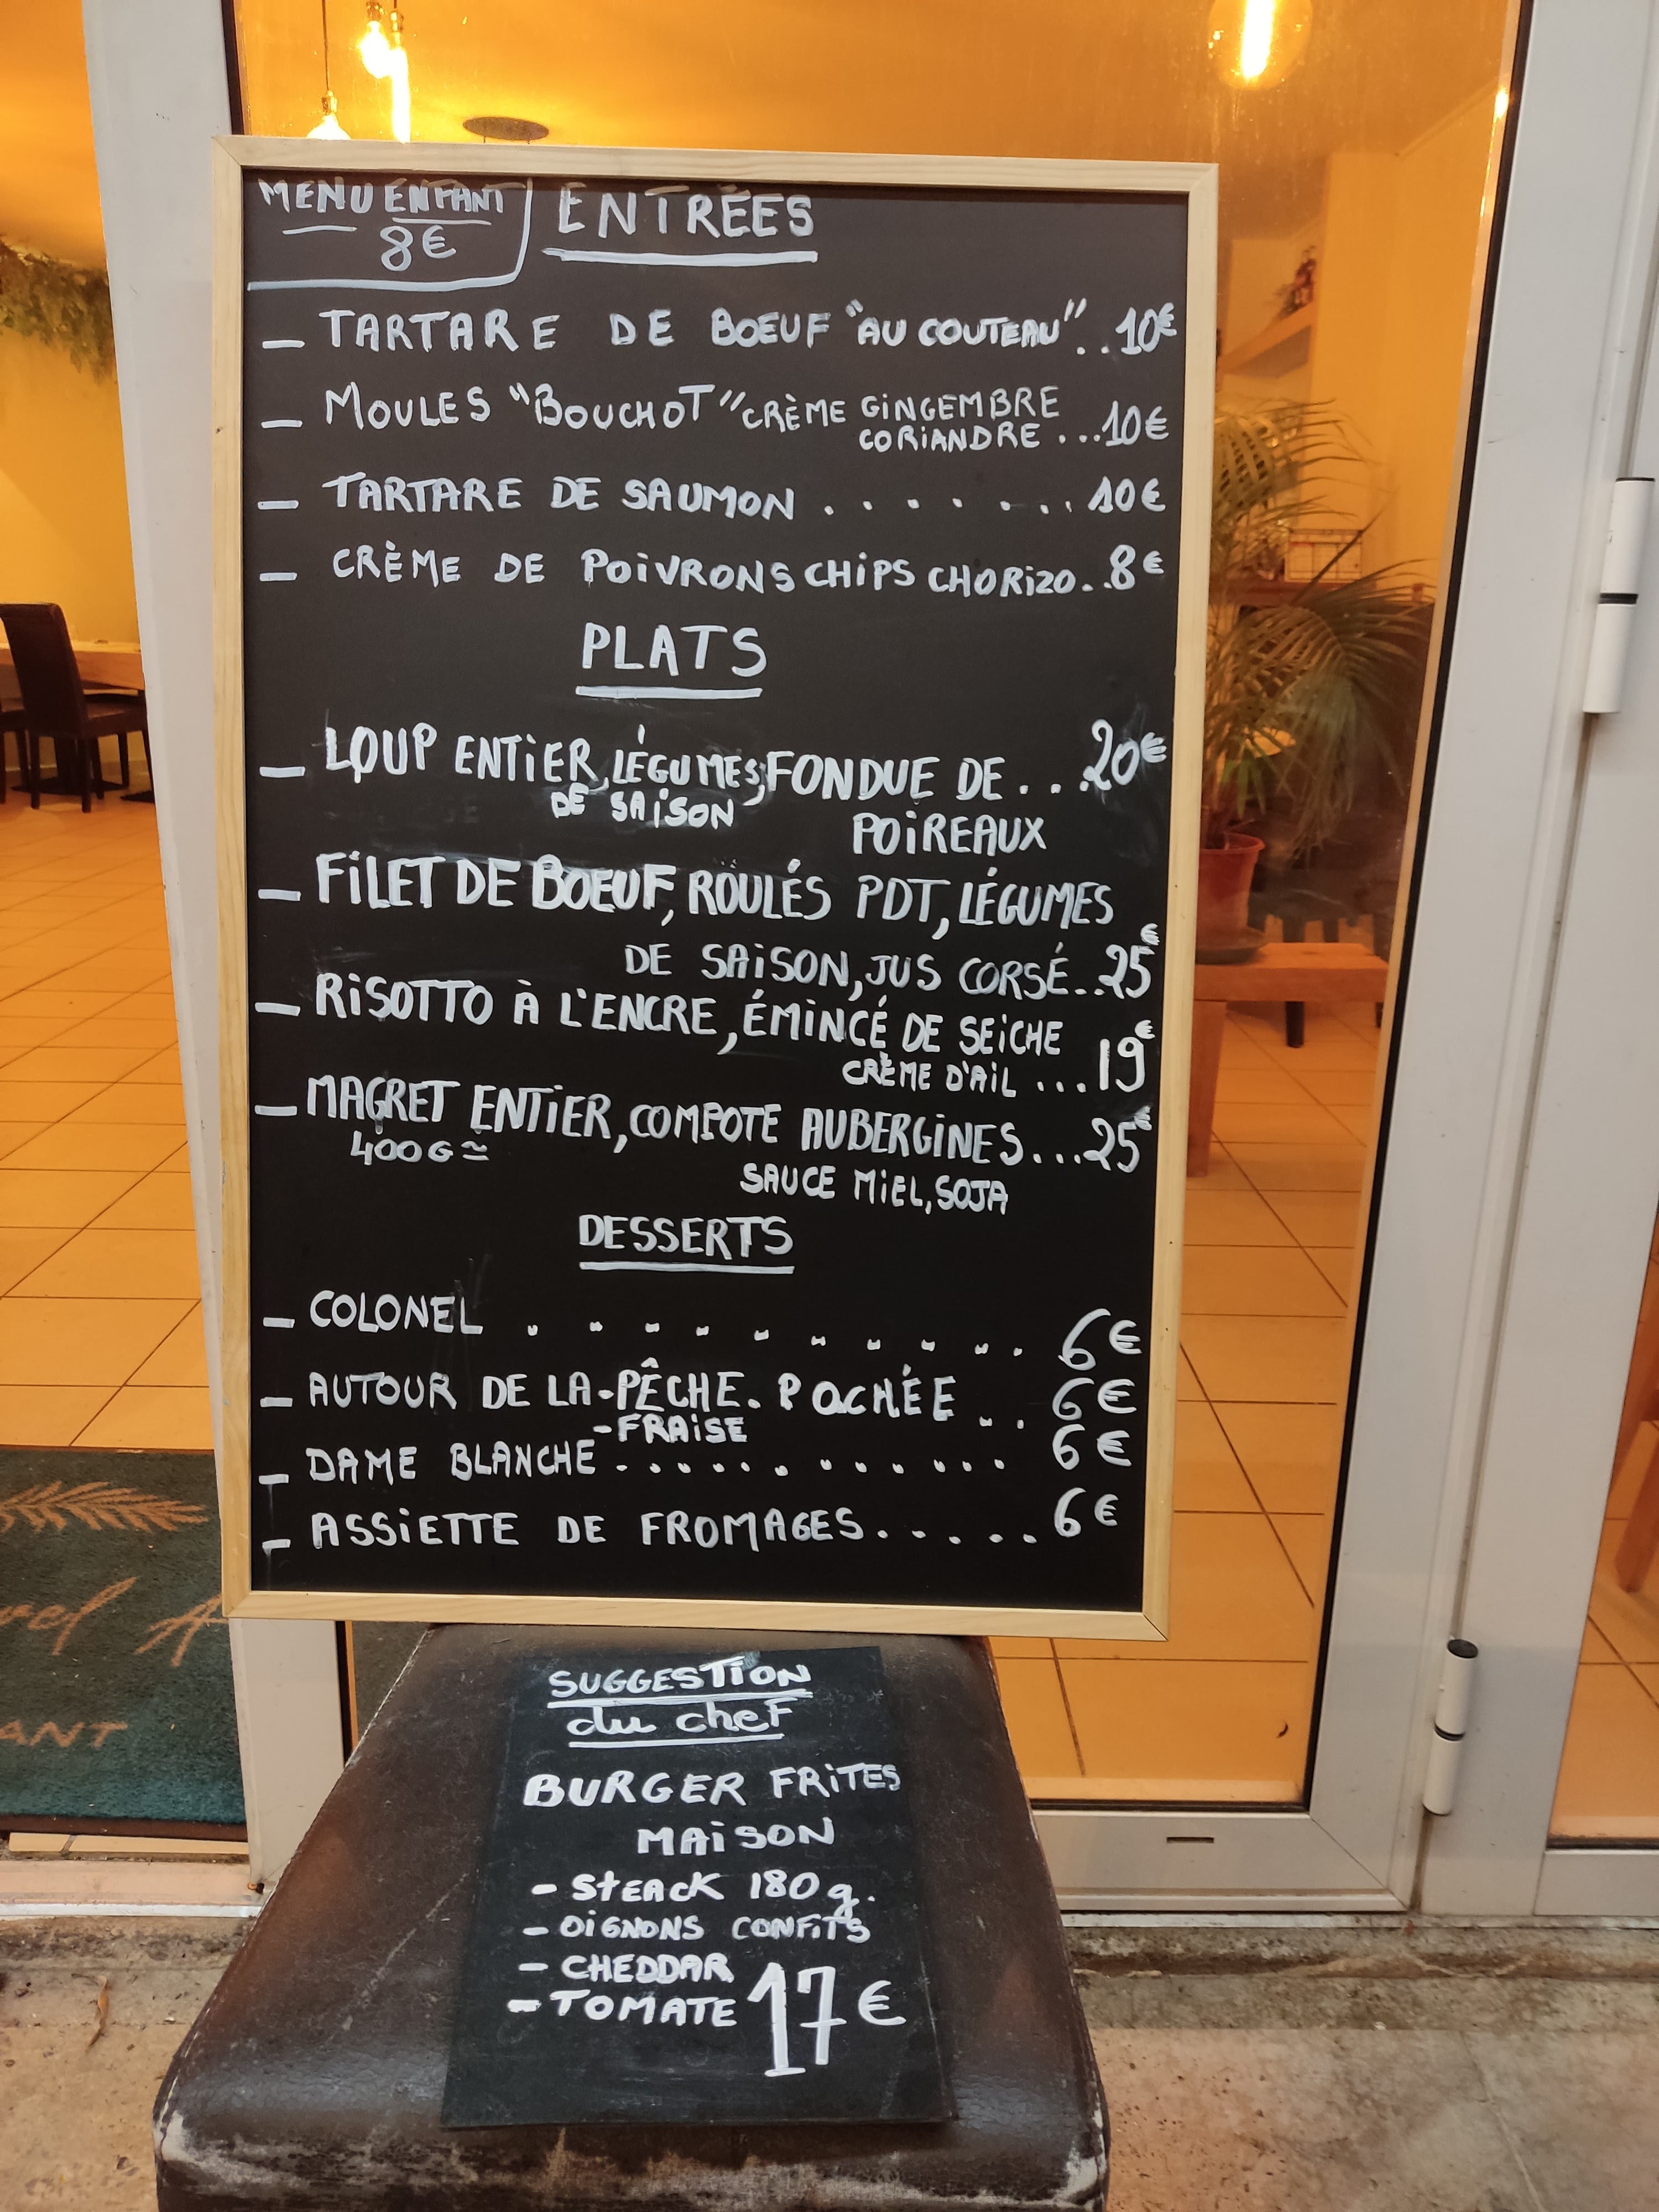 MENU ENFANT
8€
ENTRÉES
– TARTARE DE BOEUF "AU COUTEAU"..10€
– MOULES "BOUCHOT" CRÈME GINGEMBRE
CORIANDRE ...10€
– TARTARE DE SAUMON ....... 10€
– CRÈME DE POIVRONS CHIPS CHORIZO..8€
PLATS
– LOUP ENTIER, LÉGUMES, FONDUE DE ...20€
DE SAISON POIREAUX
– FILET DE BOEUF, ROULÉS PDT, LÉGUMES
DE SAISON, JUS CORSÉ..25€
– RISOTTO À L'ENCRE, ÉMINCÉ DE SEICHE
CRÈME D'AIL ...19€
– MAGRET ENTIER, COMPOTE AUBERGINES...25€
400G ≃ SAUCE MIEL, SOJA
DESSERTS
– COLONEL .......... 6€
– AUTOUR DE LA - PÊCHE. POCHÉE .. 6€
- FRAISE
– DAME BLANCHE ............ 6€
– ASSIETTE DE FROMAGES...... 6€
SUGGESTION
du cheF
BURGER FRITES
MAISON
- STEACK 180 g.
- OIGNONS CONFITS
- CHEDDAR
- TOMATE 17€
ANT